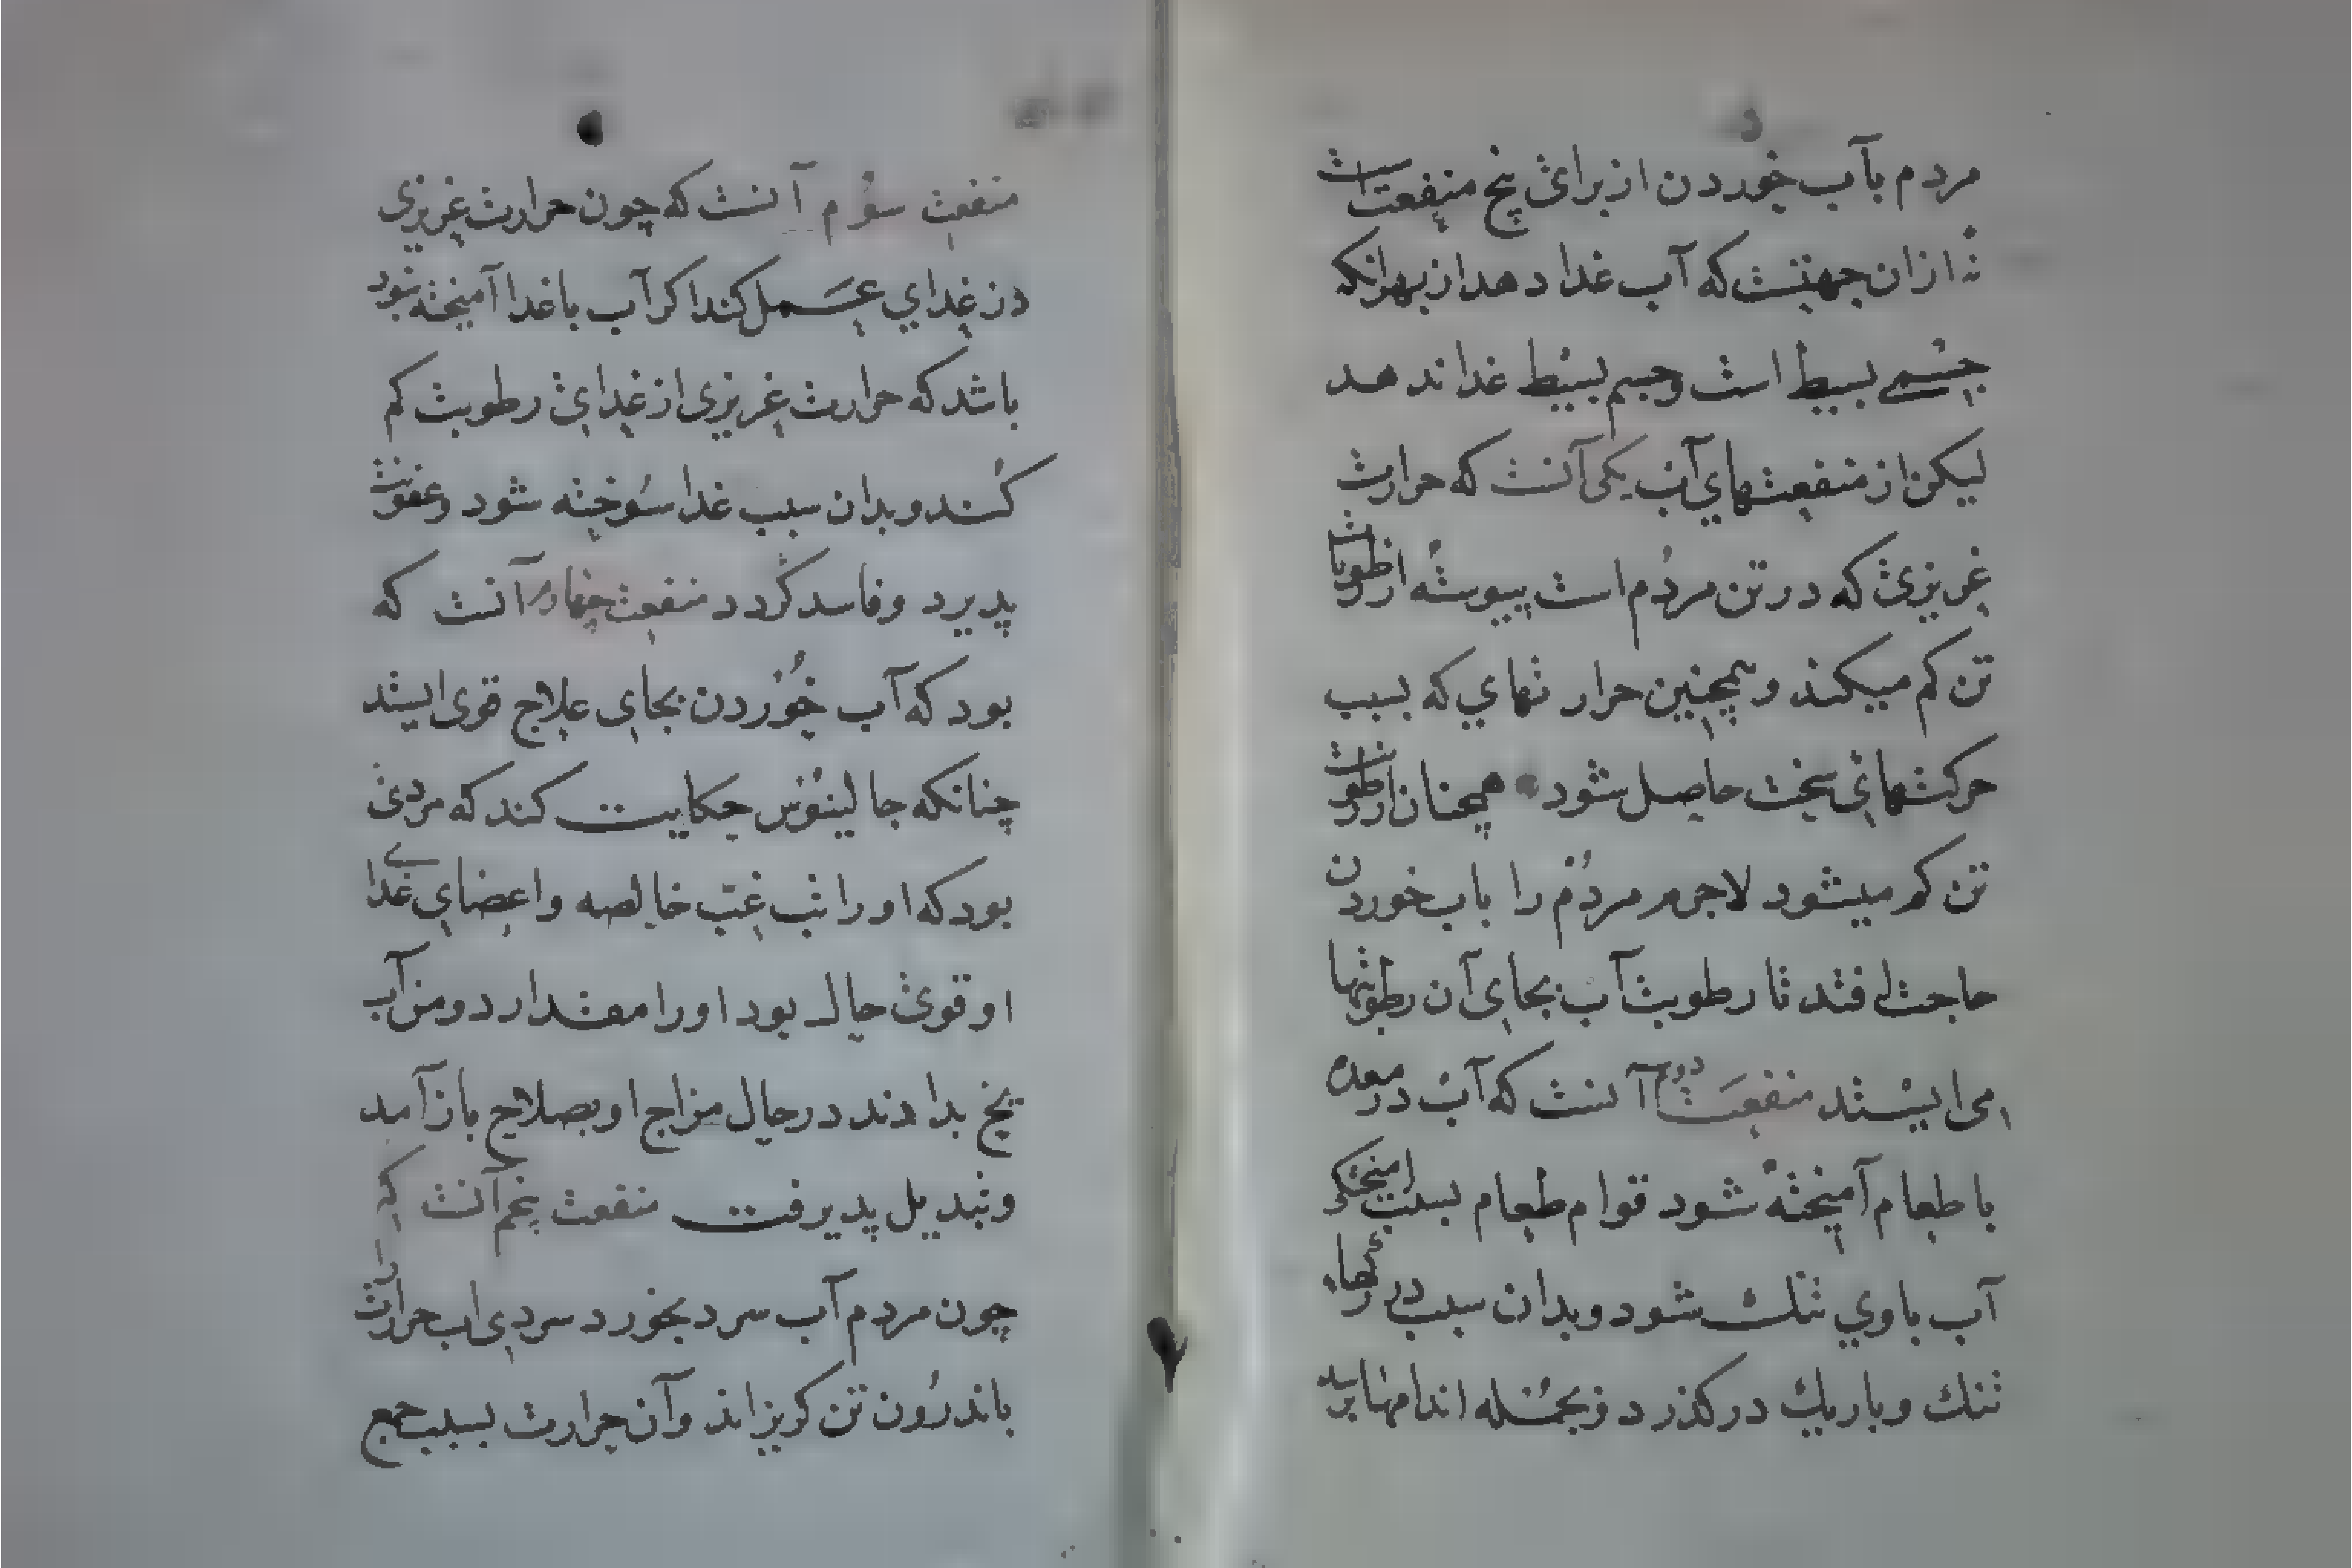 مردم بآب خوردن از برای پنج منفعتست
نه ازان جهتست که آب غدا دهد از بهرانکه
جسمی بسیط است وجسم بسیط غدا ندهد
لیکن از منفعتهای آب یکی آنست که حرارت
غریزی که در تن مردم است پیوسته از رطوبات
تن کم میکند و همچنین حرارتهای که بسبب
حرکتهای سخت حاصل شود همچنان از رطوبت
تن کم میشود لاجرم مردم را باب خوردن
حاجت افتد تا رطوبت آب بجای آن رطوبتها
می ایستد منفعت دوم آنست که آب در معده
با طعام آمیخته شود قوام طعام بسبب امیختکی
آب باوی تنک شود وبدان سبب در رکهاء
تنک وباریک در کذرد وبجمله اندامها برسد
منفعت سوم آنست که چون حرارت غریزی
در غدای عمل کند اکر آب باغدا آمیخته نبود
باشد که حرارت غریزی از غدای رطوبت کم
کند وبدان سبب غدا سوخته شود وعفونت
پدیرد وفاسد کردد منفعت چهارم آنست که
بود که آب خوردن بجای علاج قوی ایستد
چنانکه جالینوس حکایت کند که مردی
بود که اورا تب غب خالصه واعضای غدایی
او قوی حال بود اورا مقدار دو من آب
یخ بدادند در حال مزاج او بصلاح باز آمد
وتبدیل پدیرفت منفعت پنجم آنست که
چون مردم آب سرد بخورد سردی اب حرارت را
باندرون تن کریزاند وآن حرارت بسبب جمع